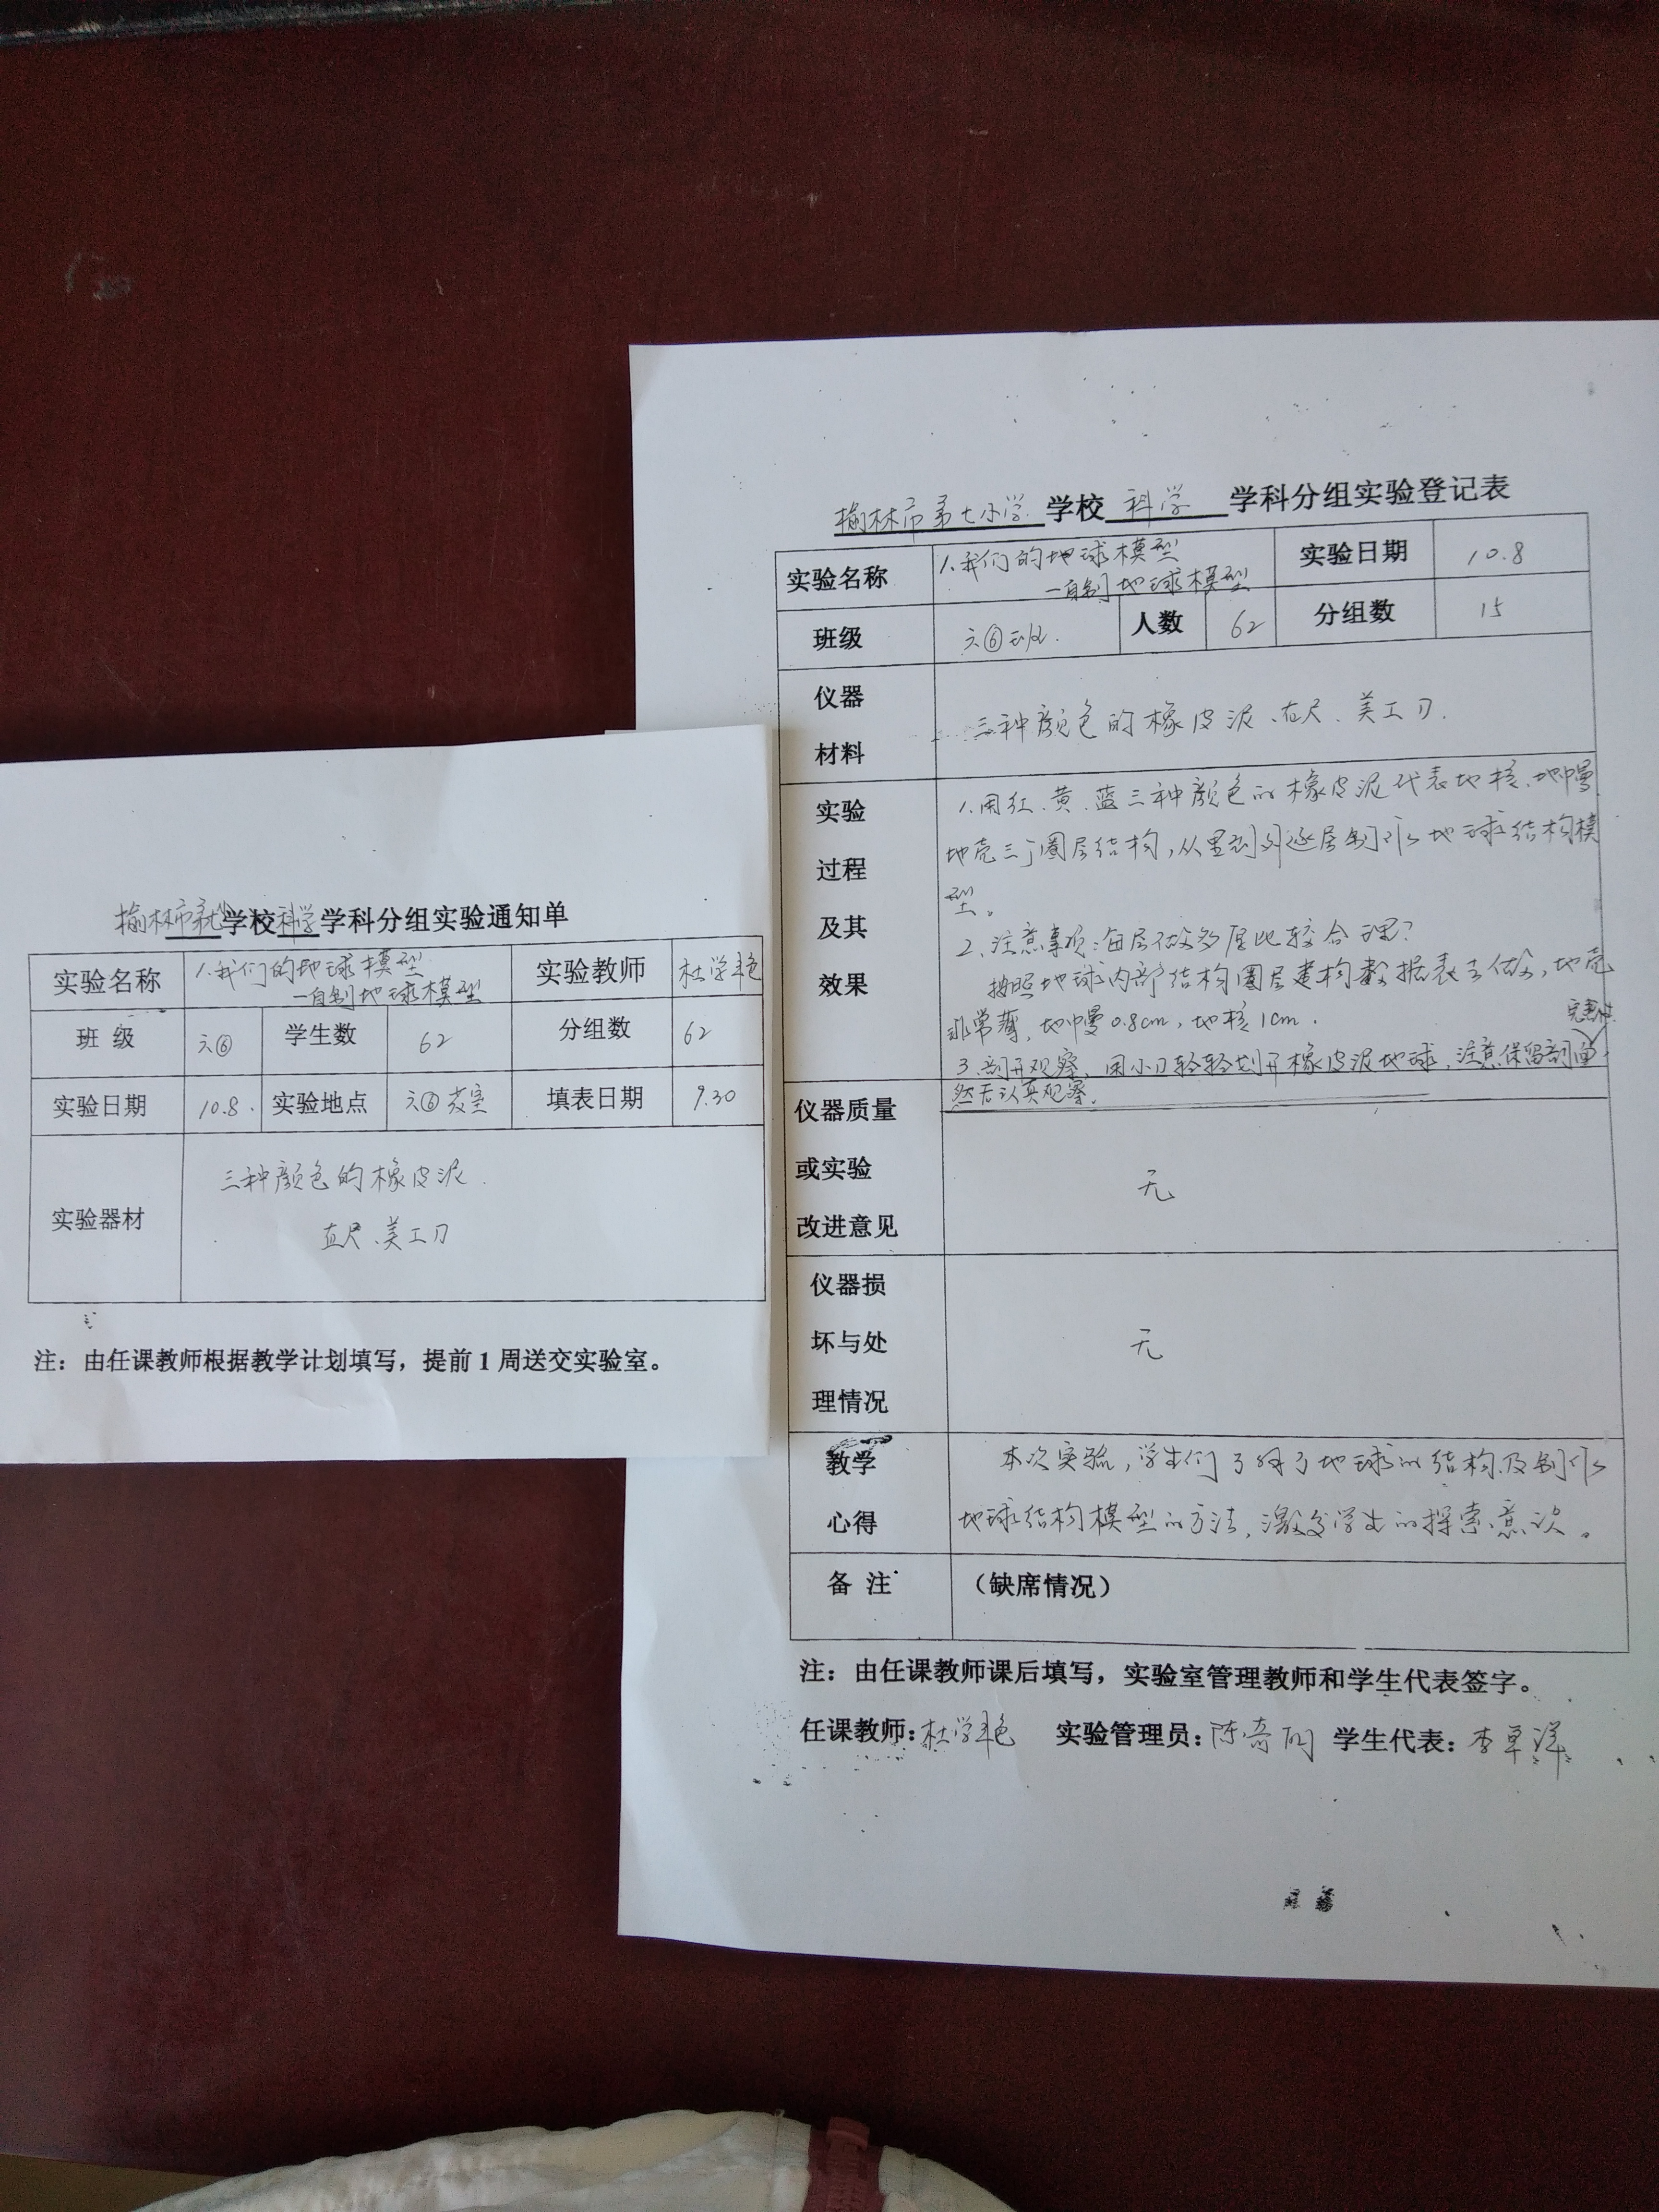 榆林市第七小学校科学学科分组实验通知单
实验名称 1.我们的地球模型 —自制地球模型 实验教师 杜学艳
班级 六⑥ 学生数 62 分组数 62
实验日期 10.8. 实验地点 六⑥教室 填表日期 9.30
实验器材 三种颜色的橡皮泥.
直尺、美工刀
注：由任课教师根据教学计划填写，提前1周送交实验室。
榆林市第七小学 学校 科学 学科分组实验登记表
实验名称 1.我们的地球模型 —自制地球模型 实验日期 10.8
班级 六⑥班. 人数 62 分组数 15
仪器材料 三种颜色的橡皮泥、直尺、美工刀.
实验过程及其效果
1.用红、黄、蓝三种颜色的橡皮泥代表地核、地幔
地壳三个圈层结构，从里到外逐层制作地球结构模
型。
2.注意事项：每层做多厚比较合理？
按照地球内部结构圈层建构数据表去做，地壳
非常薄，地幔0.8cm，地核1cm.
3.剖开观察，用小刀轻轻划开橡皮泥地球，注意保留剖面完整性
然后认真观察.
仪器质量或实验改进意见 无
仪器损坏与处理情况 无
教学心得 本次实验，学生们了解了地球的结构及制作
地球结构模型的方法，激发学生的探索意识。
备注 （缺席情况）
注：由任课教师课后填写，实验室管理教师和学生代表签字。
任课教师：杜学艳 实验管理员：陈奇 学生代表：李卓洋